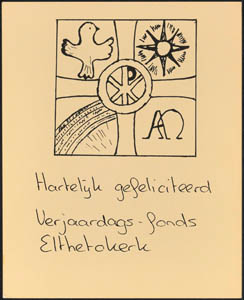 AΩ
Hartelijk gefeliciteerd
Verjaardags-fonds
Elthetokerk